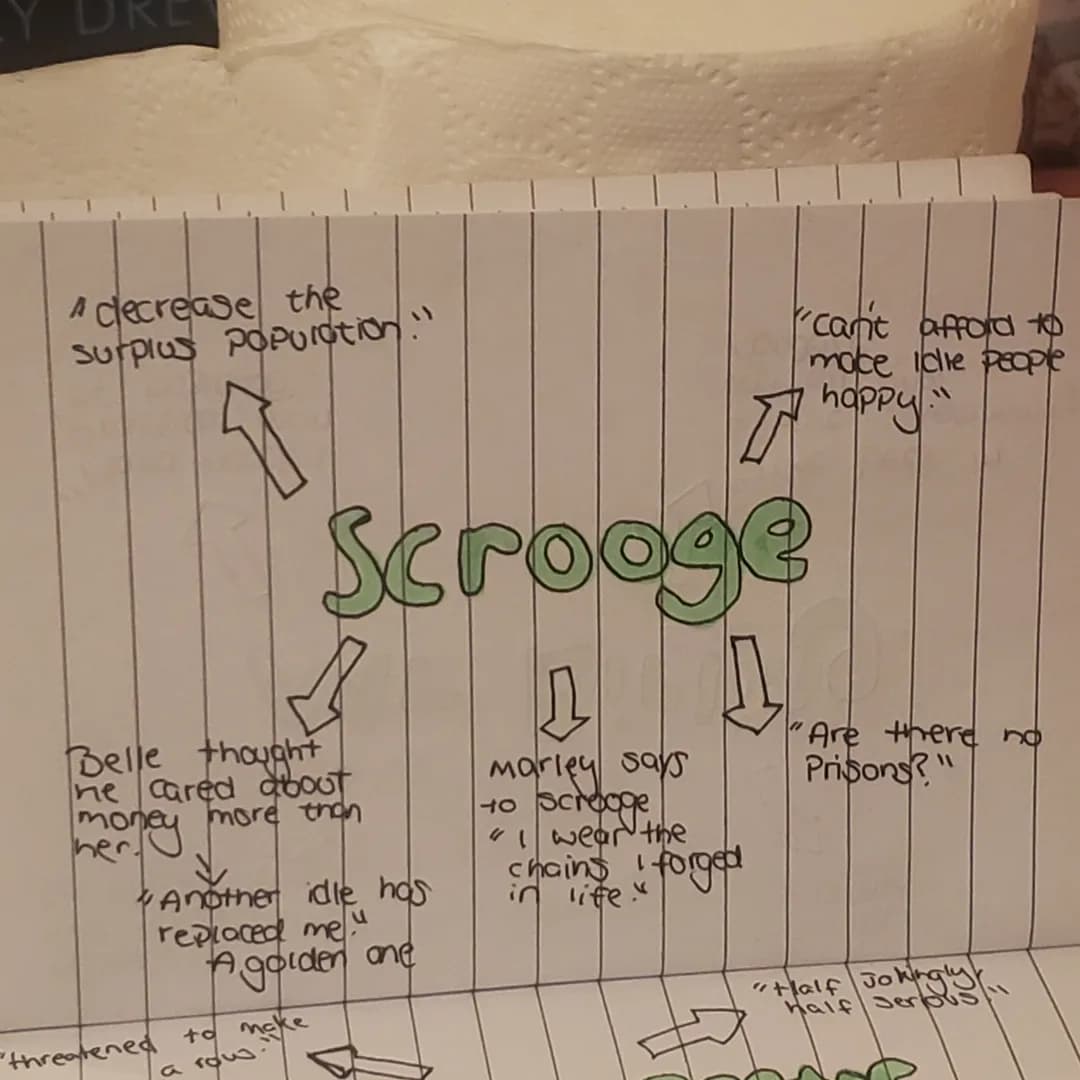 "decrease the
surplus population."
"can't afford to
make idle people
happy."
Scrooge
Belle thought
he cared about
money more than
her.
"Another idle has
replaced me."
A golden one
Marley says
to scrooge
"I wear the
chains I forged
in life."
"Are there no
Prisons?"
"Half Jokingly,
half serious."
"threatened to make
a row."